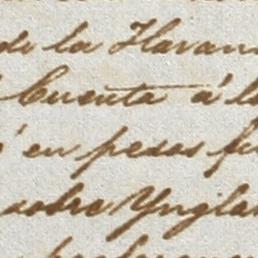 de la Havan
Cuenta á l
en pesos fu
sobre Yngla